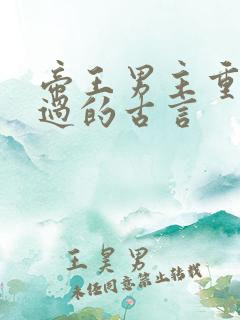 帝王男主重
过的古言
王昊男
未经同意禁止转载